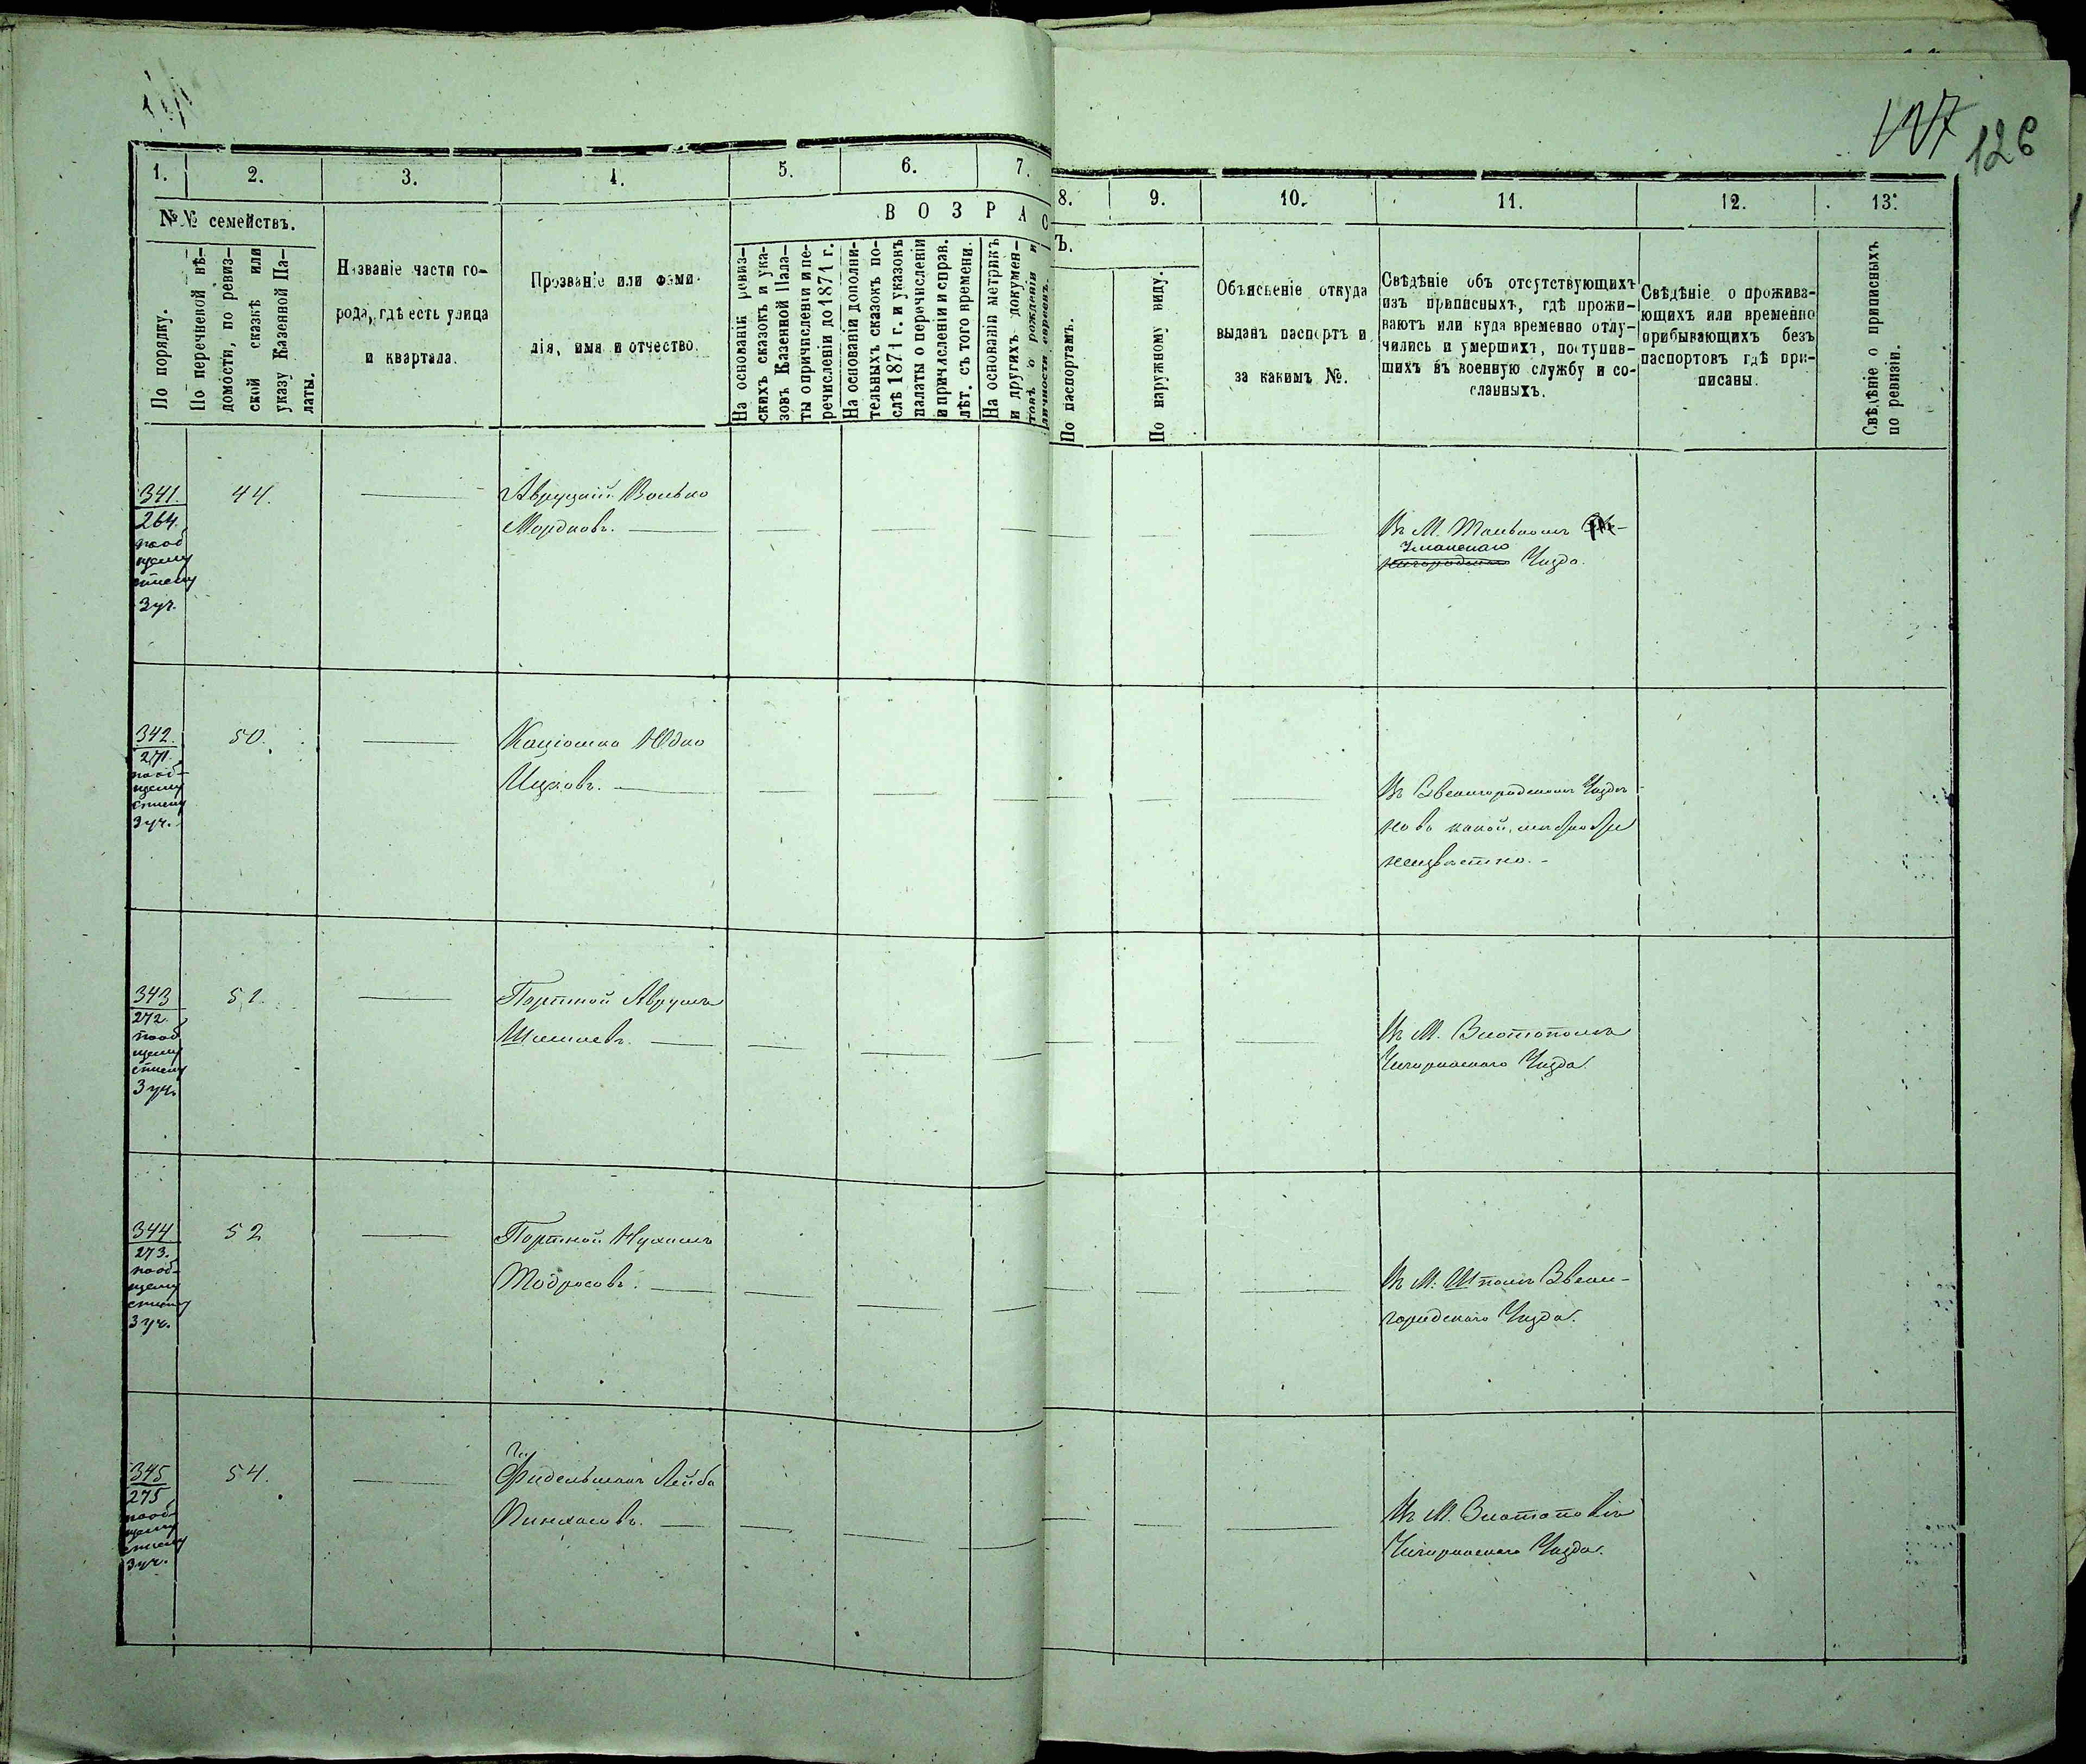 127
126
1.
2.
3.
4.
5.
6.
7.
8.
9.
10.
11.
12.
13.
№№ семействъ.
По порядку.
По перечневой вѣ-
домости, по ревиз-
ской сказкѣ или
указу Казенной Па-
латы.
Названіе части го-
рода, гдѣ есть улица
и квартала.
Прозваніе или фами-
лія, имя и отчество.
ВОЗРАС
Ъ.
На основаніи ревиз-
скихъ сказокъ и ука-
зовъ Казенной Пала-
ты о причисленіи и пе-
речисленіи до 1871 г.
На основаніи дополни-
тельныхъ сказокъ по-
слѣ 1871 г. и указовъ
палаты о перечисленіи
и причисленіи и справ.
лѣт. съ того времени.
На основаніи метрикъ
и другихъ докумен-
товъ о рожденіи и
личности евреевъ.
По паспортамъ.
По наружному виду.
Объясненіе откуда
выданъ паспортъ и
за какимъ №.
Свѣдѣніе объ отсутствующихъ
изъ приписныхъ, гдѣ прожи-
ваютъ или куда временно отлу-
чились и умершихъ, поступив-
шихъ въ военную службу и со-
сланныхъ.
Свѣдѣніе о прожива-
ющихъ или временно
прибывающихъ безъ
паспортовъ гдѣ при-
писаны.
Свѣдѣніе о приписныхъ
по ревизіи.
341.
264.
по об
щему
списку
3 уч.
44.
Авруцкій Волько
Мордковъ.
Въ М. Тальномъ
Уманскаго
Уѣзда.
342.
271.
по об-
щему
списку
3 уч.
50.
Юдко
Ицковъ.
Въ Звенигородскомъ Уѣздѣ
но въ какой
неизвѣстно.
343
272.
по об
щему
списку
3 уч.
51.
Портной Аврумъ
Шмилевъ.
Въ М. Златополѣ
Чигиринскаго Уѣзда.
344
273.
по об-
щему
списку
3 уч.
52
Портной Нухимъ
Тодросовъ.
Въ М. Шполѣ Звени-
городскаго Уѣзда.
345
275
по об-
щему
списку
3 уч.
54.
Фидельманъ Лейба
Пинхасовъ.
Въ М. Златополѣ
Чигиринскаго Уѣзда.